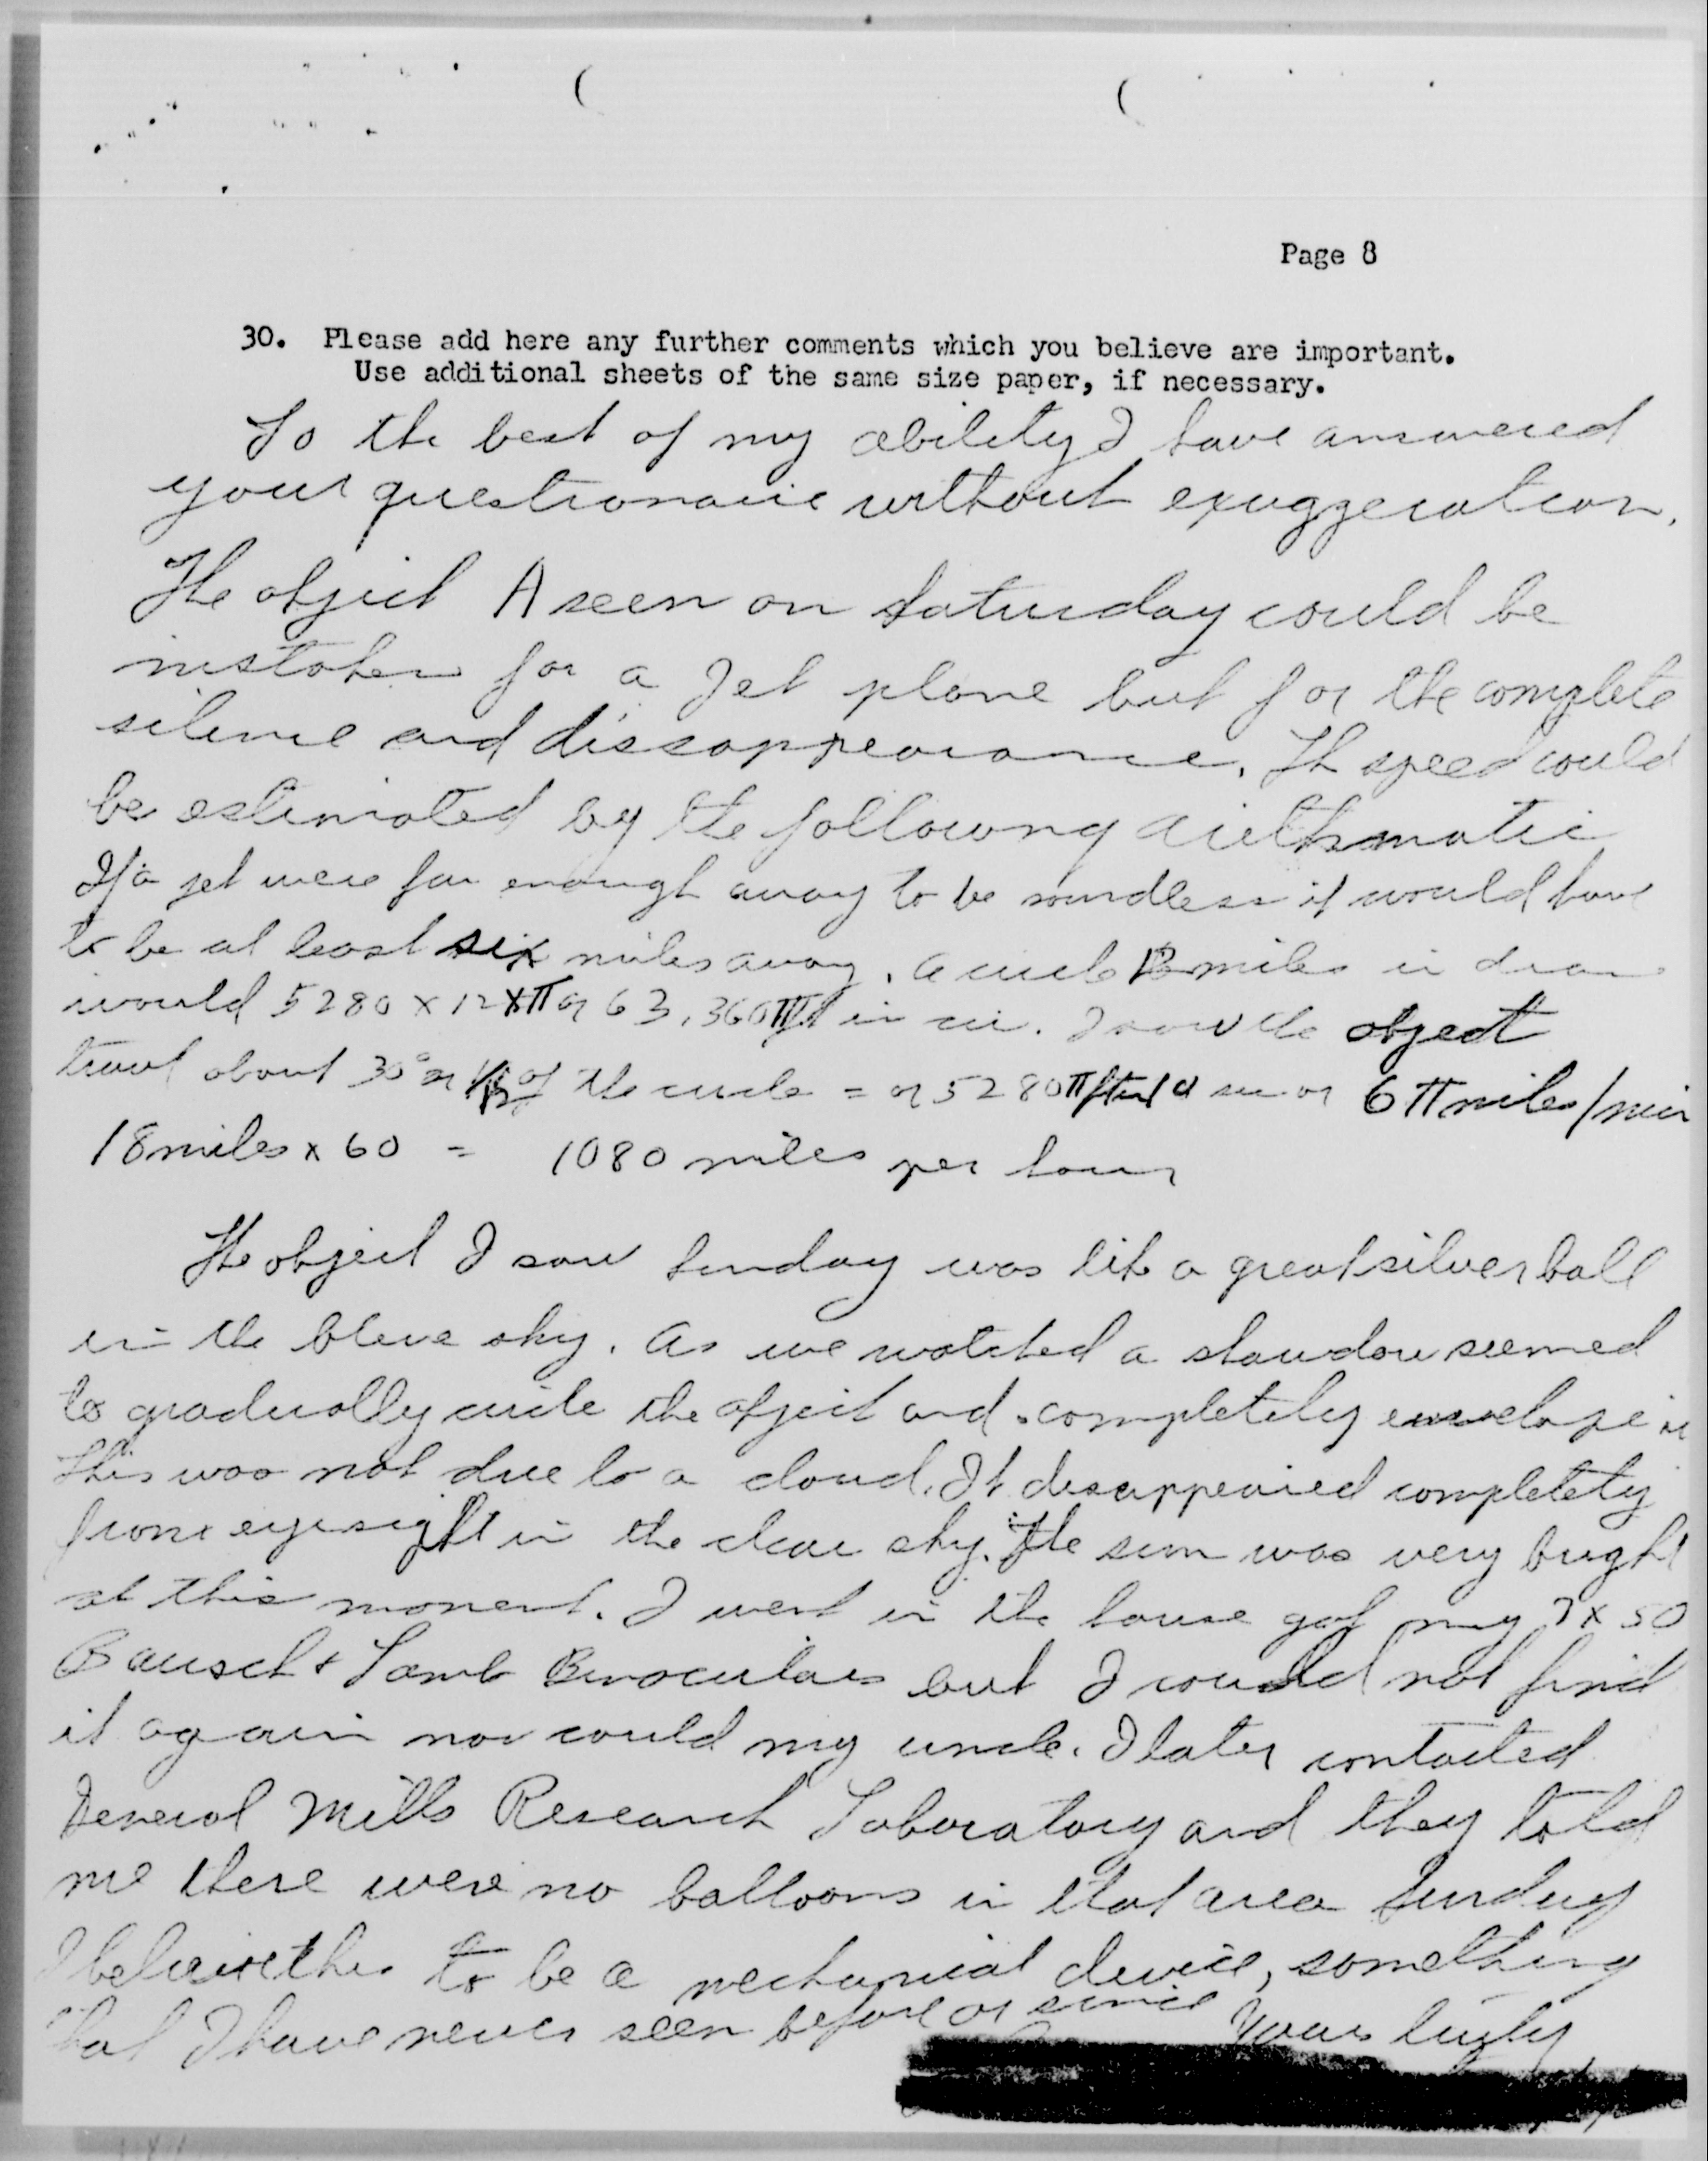 Page 8
30. Please add here any further comments which you believe are important.
Use additional sheets of the same size paper, if necessary.
To the best of my ability I have answered
your questionaire without exaggeration.
The object A seen on Saturday could be
mistaken for a Jet plane but for the complete
silence and dissappearance. Th speed could
be estimated by the following arithmatic
If a jet were far enough away to be soundless it would have
to be at least six miles away. A circle 12 miles in diam
would 5280 x 12 x π or 63,360 π ft in cir. I saw the object
travel about 30° or 1/12 of the circle = or 5280 π ft in 10 sec or 6 π miles/min
18 miles x 60 = 1080 miles per hour
The object I saw Sunday was like a great silver ball
in the blue sky. As we watched a shawdow seemed
to gradually circle the object and completely envelope it
This was not due to a cloud. It disappeared completely
from eyesight in the clear sky. The sun was very bright
at this moment. I went in the house got my 7 x 50
Bausch & Lomb Binoculars but I could not find
it again nor could my uncle. I later contacted
General Mills Research Laboratory and they told
me there were no balloons in that area Sunday
I beleive this to be a mechanical device, something
that I have never seen before or since
Yours truly